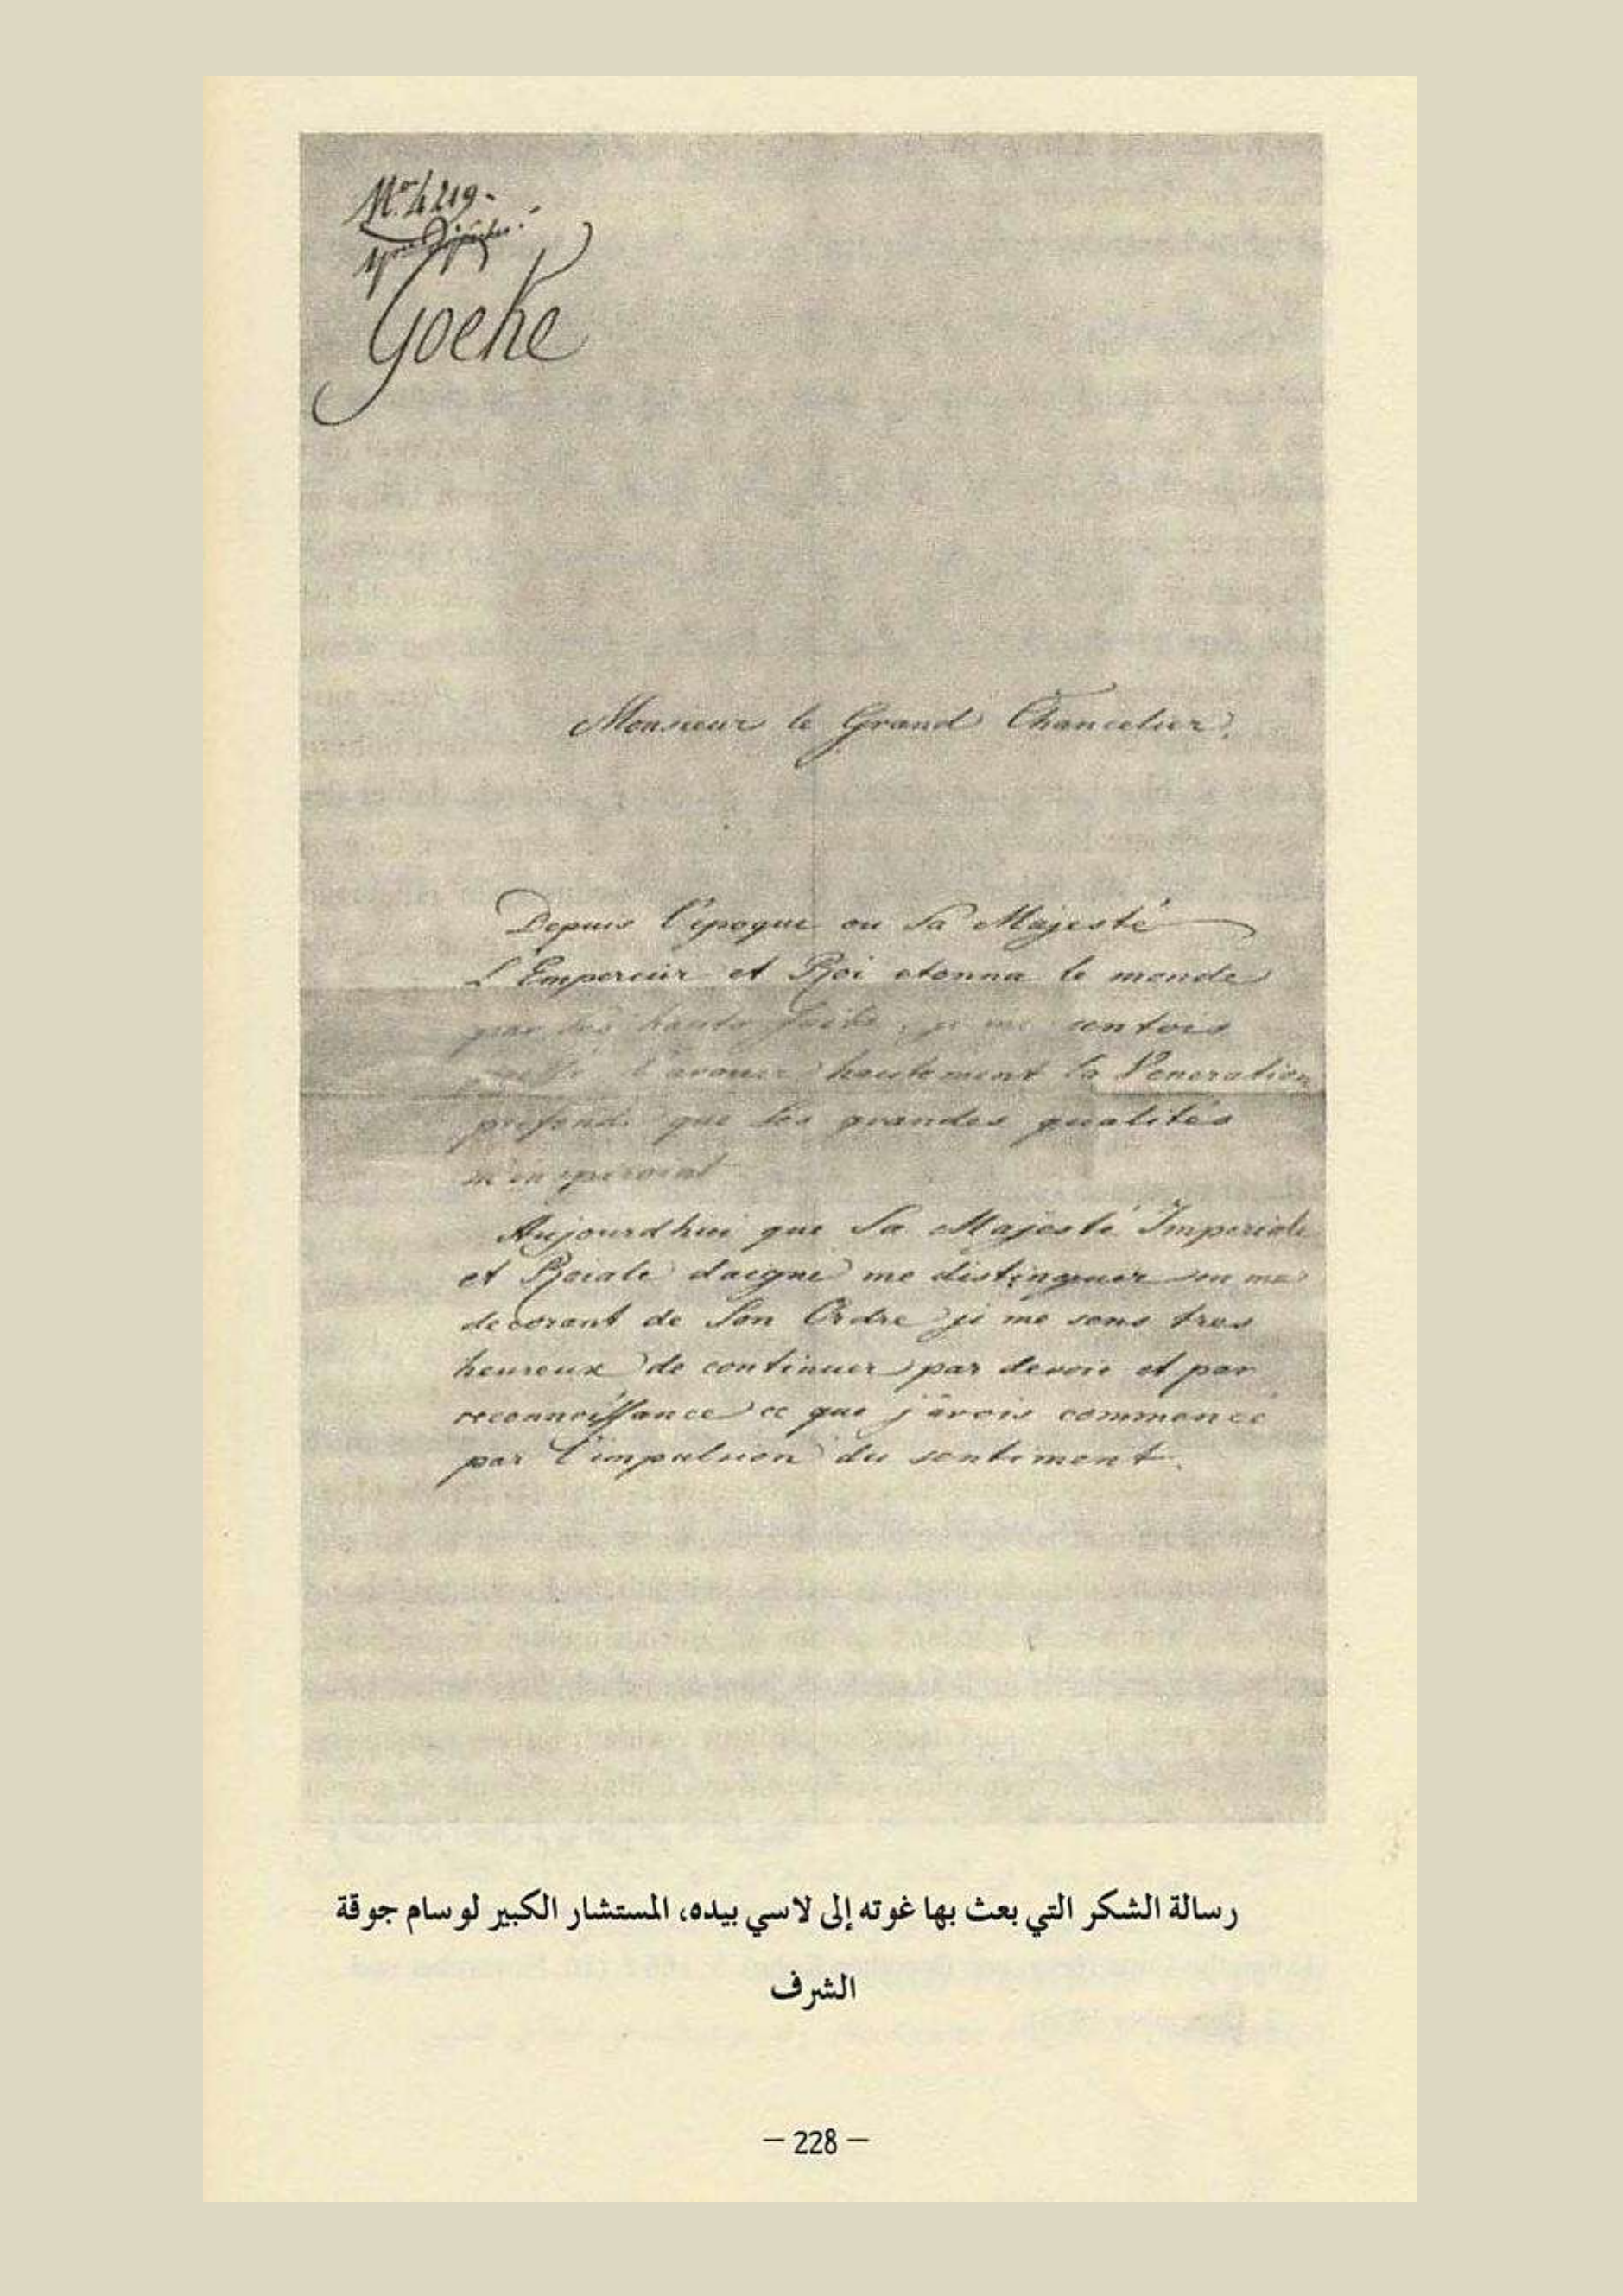 No. 4219.
Goethe
Monsieur le Grand Chancelier.
Depuis l'epoque ou Sa Majesté
L'Empereur et Roi etonna le monde
par ses hauts faits, je me sentois
l'avouer hautement la Veneration
profonde que Ses grandes qualités
m'inspiroient
Aujourdhui que Sa Majesté Imperiale
et Roiale daigne me distinguer en me
decorant de Son Ordre je me sens tres
heureux de continuer par devoir et par
reconnoissance ce que j'avois commencé
par l'impulsion du sentiment.
رسالة الشكر التي بعث بها غوته إلى لاسي بيده، المستشار الكبير لوسام جوقة
الشرف
– 228 –